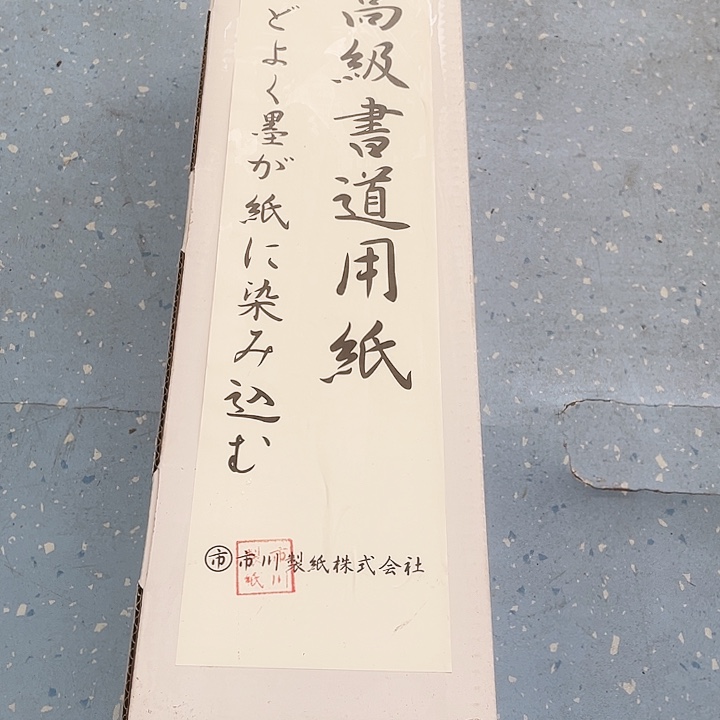 高級書道用紙
どよく墨が紙に染み込む
㊞市川製紙株式会社
市川
製紙